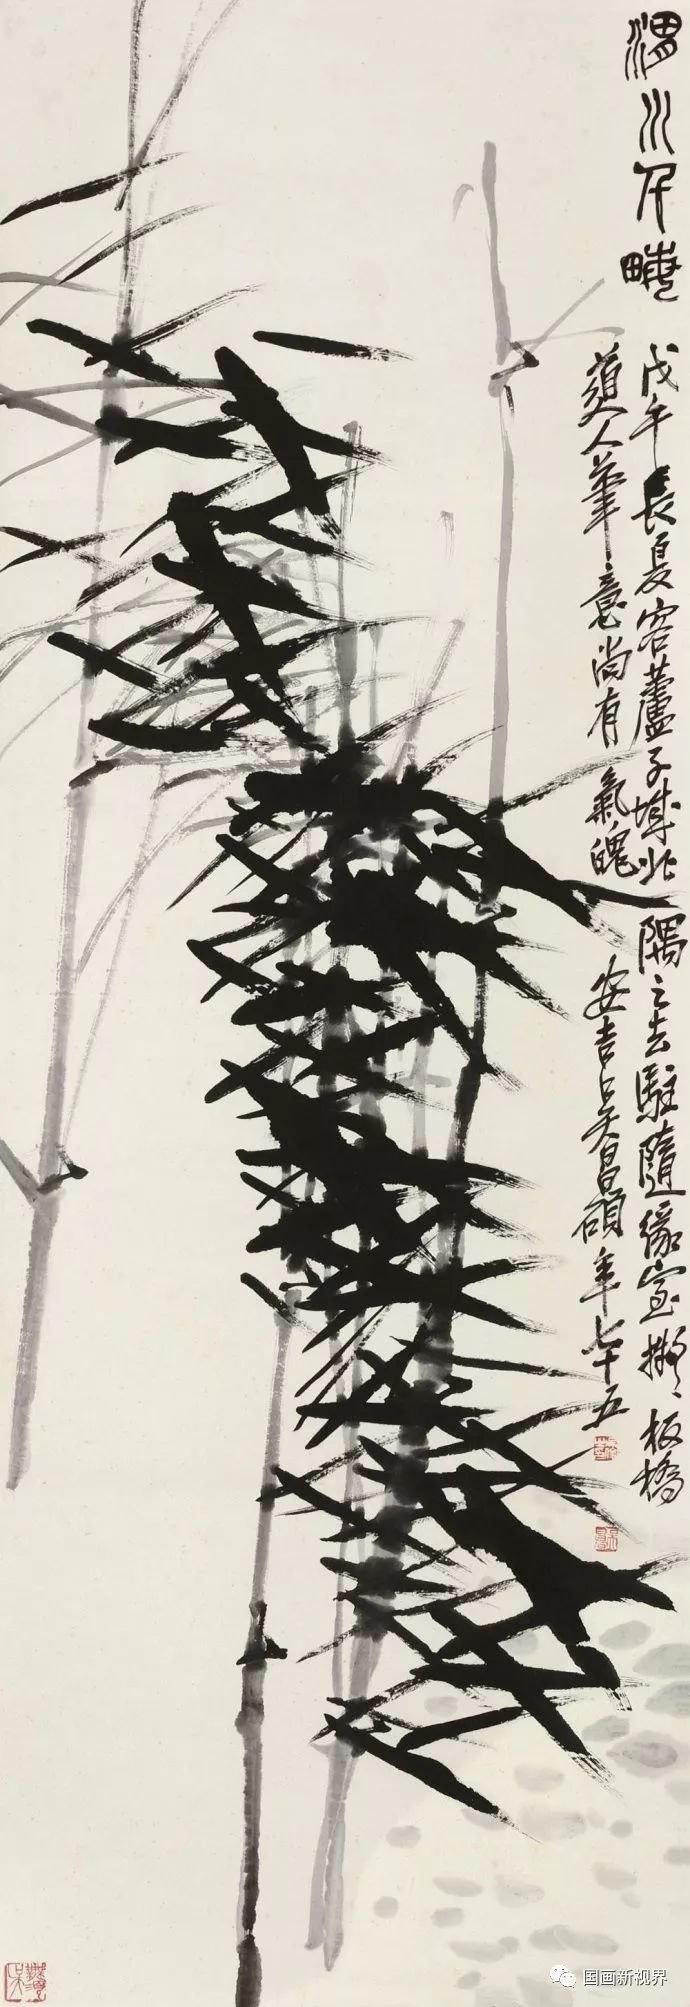 渭川千畝
戊午長夏客蘆子城北一隅之去駐隨緣室擬板橋
道人筆意尚有氣魄
安吉吳昌碩年七十五
国画新视界